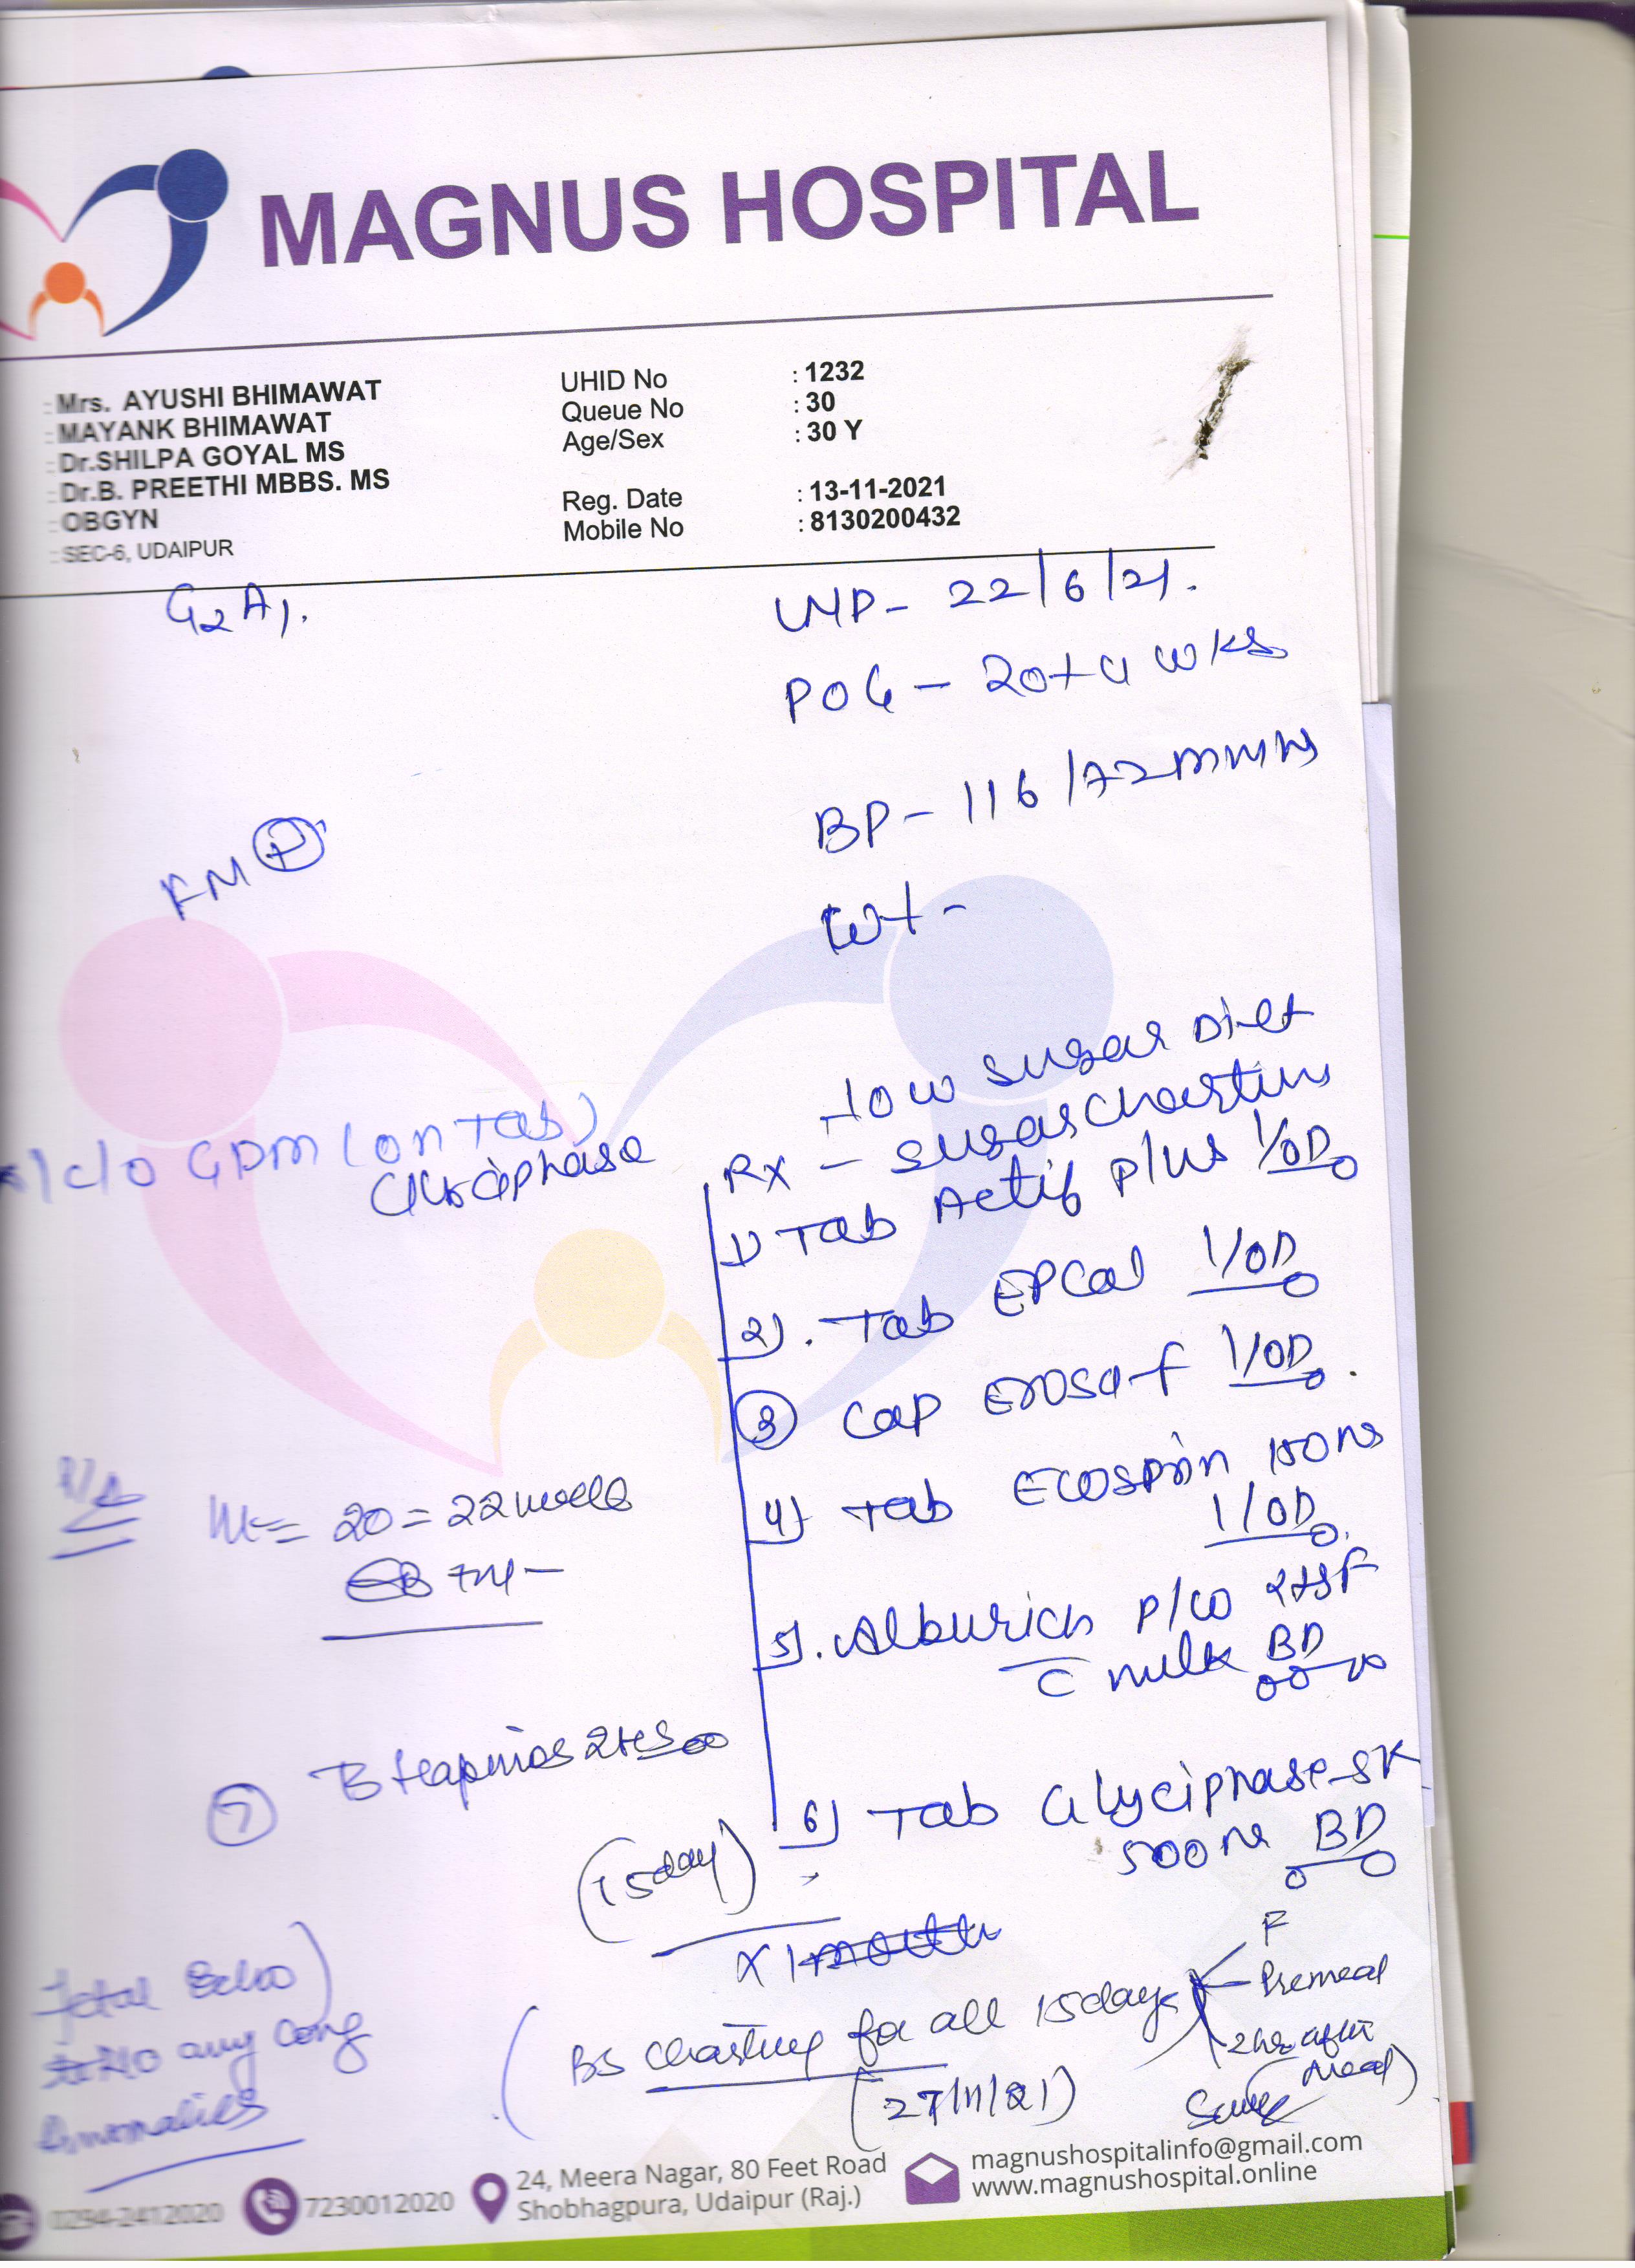 MAGNUS HOSPITAL
: Mrs. AYUSHI BHIMAWAT
: MAYANK BHIMAWAT
: Dr.SHILPA GOYAL MS
: Dr.B. PREETHI MBBS. MS
: OBGYN
: SEC-6, UDAIPUR
UHID No : 1232
Queue No : 30
Age/Sex : 30 Y
Reg. Date : 13-11-2021
Mobile No : 8130200432
G2A1.
LMP- 22/6/21.
POG - 20+4 wks
BP- 116/72mmHg
FM (P)
Wt -
- low sugar Diet
Rx - sugar charting
K/c/o GDM (on Tab)
Gluciphase
1) Tab Actif plus 1/OD
2). Tab EPCal 1/OD
3) Cap Erosa-f 1/OD.
4) Tab Ecospirin 150 mg
1/OD.
P/A
Ut = 20=22 weeks
5). Alburich P/W 2tsf
c milk BD
7
6) Tab Glyciphase-SR
500mg BD
(15day)
x 1 month
Fetal Echo
no any cong
Anomalies
(BS charting for all 15days
F
Premeal
2hr after
meal)
(27/11/21)
0294-2412020
7230012020
24, Meera Nagar, 80 Feet Road
Shobhagpura, Udaipur (Raj.)
magnushospitalinfo@gmail.com
www.magnushospital.online